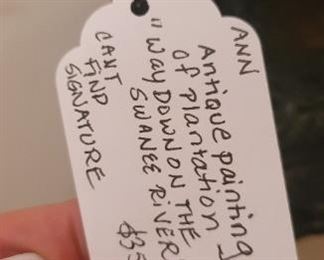 ANN
Antique painting
of plantation
"WAY DOWN ON THE
SWANEE RIVER"
CAN'T
FIND
SIGNATURE